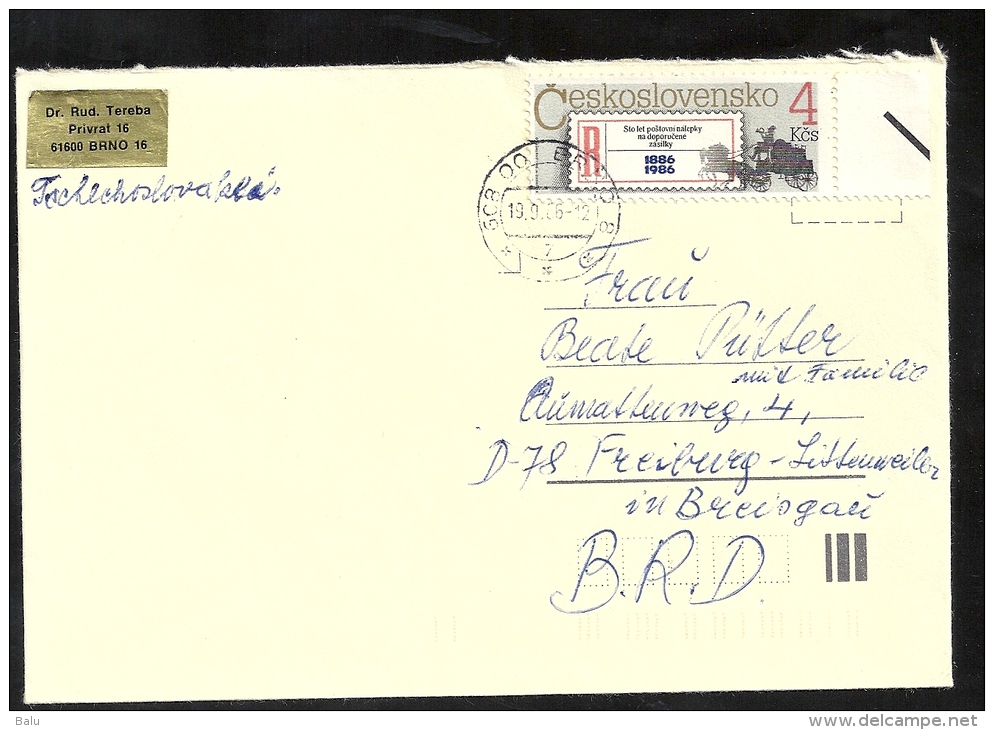 Dr. Rud. Tereba
Privrat 16
61600 BRNO 16
Československo 4
Kčs
R
Sto let poštovní nálepky
na doporučené
zásilky
1886
1986
19.9.86-12
7
Frau
Beate Pütter
mit Familie
Aumattenweg, 4,
D-78 Freiburg-Littenweiler
in Breisgau
B.R.D.
Balu
delcampe.net